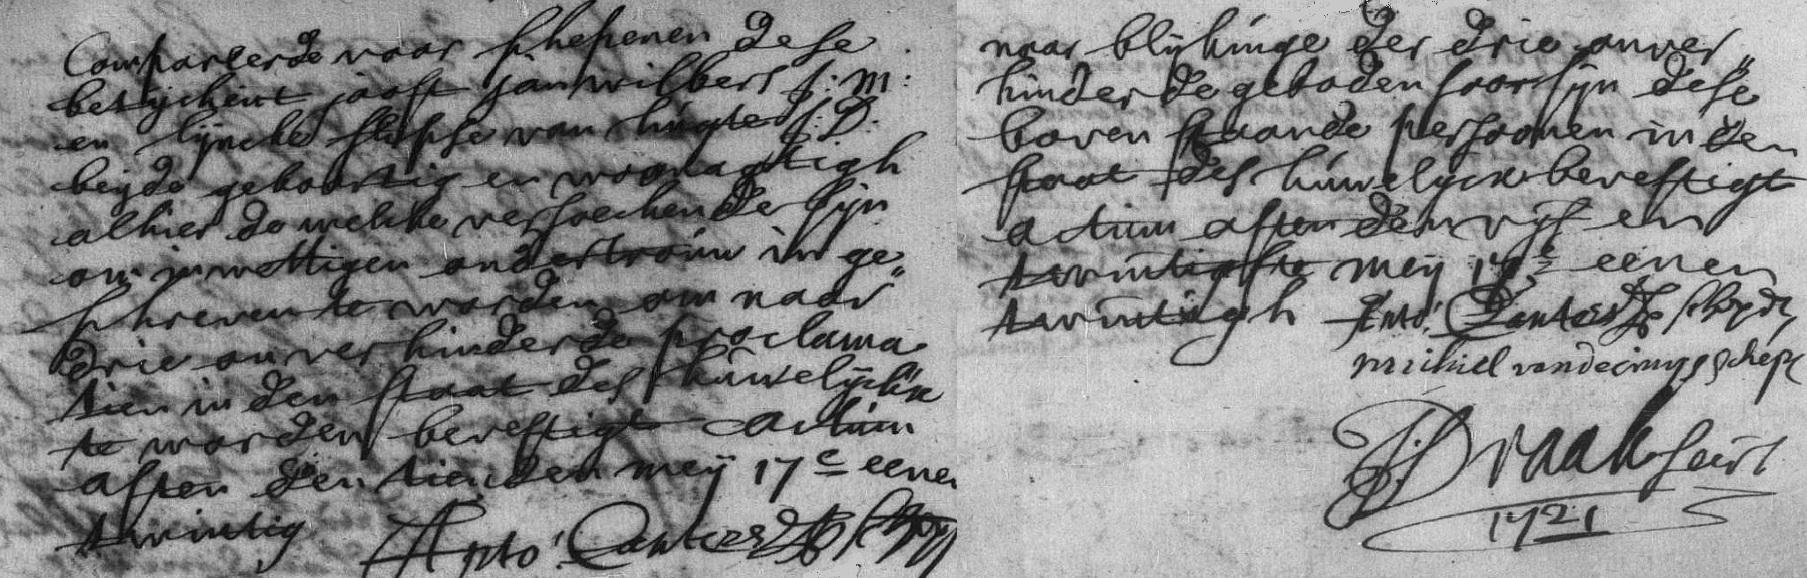 Comparerde voor schepenen dese
betijckent joost janwilbers j: m:
en lijncke van hugte j: D:
beijde geboortig en woonagtigh
alhier de welcke versoeckende sijn
om in wettigen ondertrouw in ge„
schreven te worden om naar
drie onverhinderde proclama
tien in den staat des huwelijckx
te worden bevestigt actum
asten den tienden meij 17c eenen
twintig Anto: Canters schepen
naer blijkinge der drie onver„
hinderde geboden soo sijn dese
boven staande persoonen in den
staat des huwelijcx bevestigt
actum asten den vijf en
twintigste meij 17c eenen
twintigh Anto: Canters schepen
michiel vande cruijs schepe
Draakhart
1721